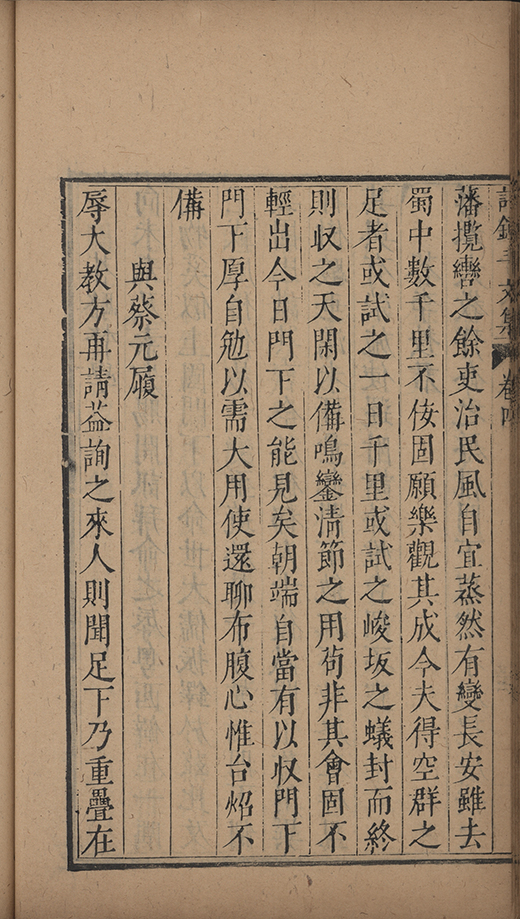 文集 卷四
藩攬轡之餘吏治民風自宜蒸然有變長安雖去
蜀中數千里不佞固願樂觀其成今夫得空群之
足者或試之一日千里或試之峻坂之蟻封而終
則収之天閑以備鳴鑾淸節之用苟非其會固不
輕出今日門下之能見矣朝端自當有以収門下
門下厚自勉以需大用使還聊布腹心惟台炤不
備
與蔡元履
辱大教方再請益詢之來人則聞足下乃重疊在